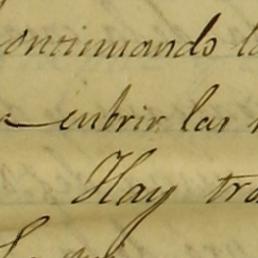 Continuando la
a cubrir las
Hay tra